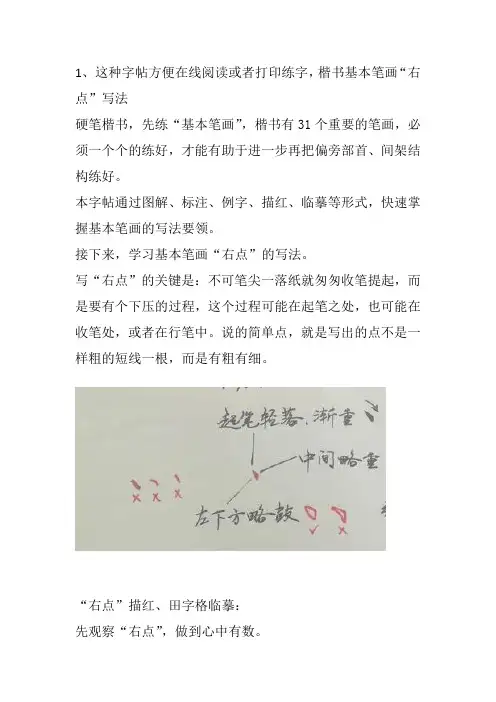 1、这种字帖方便在线阅读或者打印练字，楷书基本笔画“右
点”写法
硬笔楷书，先练“基本笔画”，楷书有31个重要的笔画，必
须一个个的练好，才能有助于进一步再把偏旁部首、间架结
构练好。
本字帖通过图解、标注、例字、描红、临摹等形式，快速掌
握基本笔画的写法要领。
接下来，学习基本笔画“右点”的写法。
写“右点”的关键是：不可笔尖一落纸就匆匆收笔提起，而
是要有个下压的过程，这个过程可能在起笔之处，也可能在
收笔处，或者在行笔中。说的简单点，就是写出的点不是一
样粗的短线一根，而是有粗有细。
起笔轻落，渐重
中间略重
左下方略鼓
“右点”描红、田字格临摹：
先观察“右点”，做到心中有数。